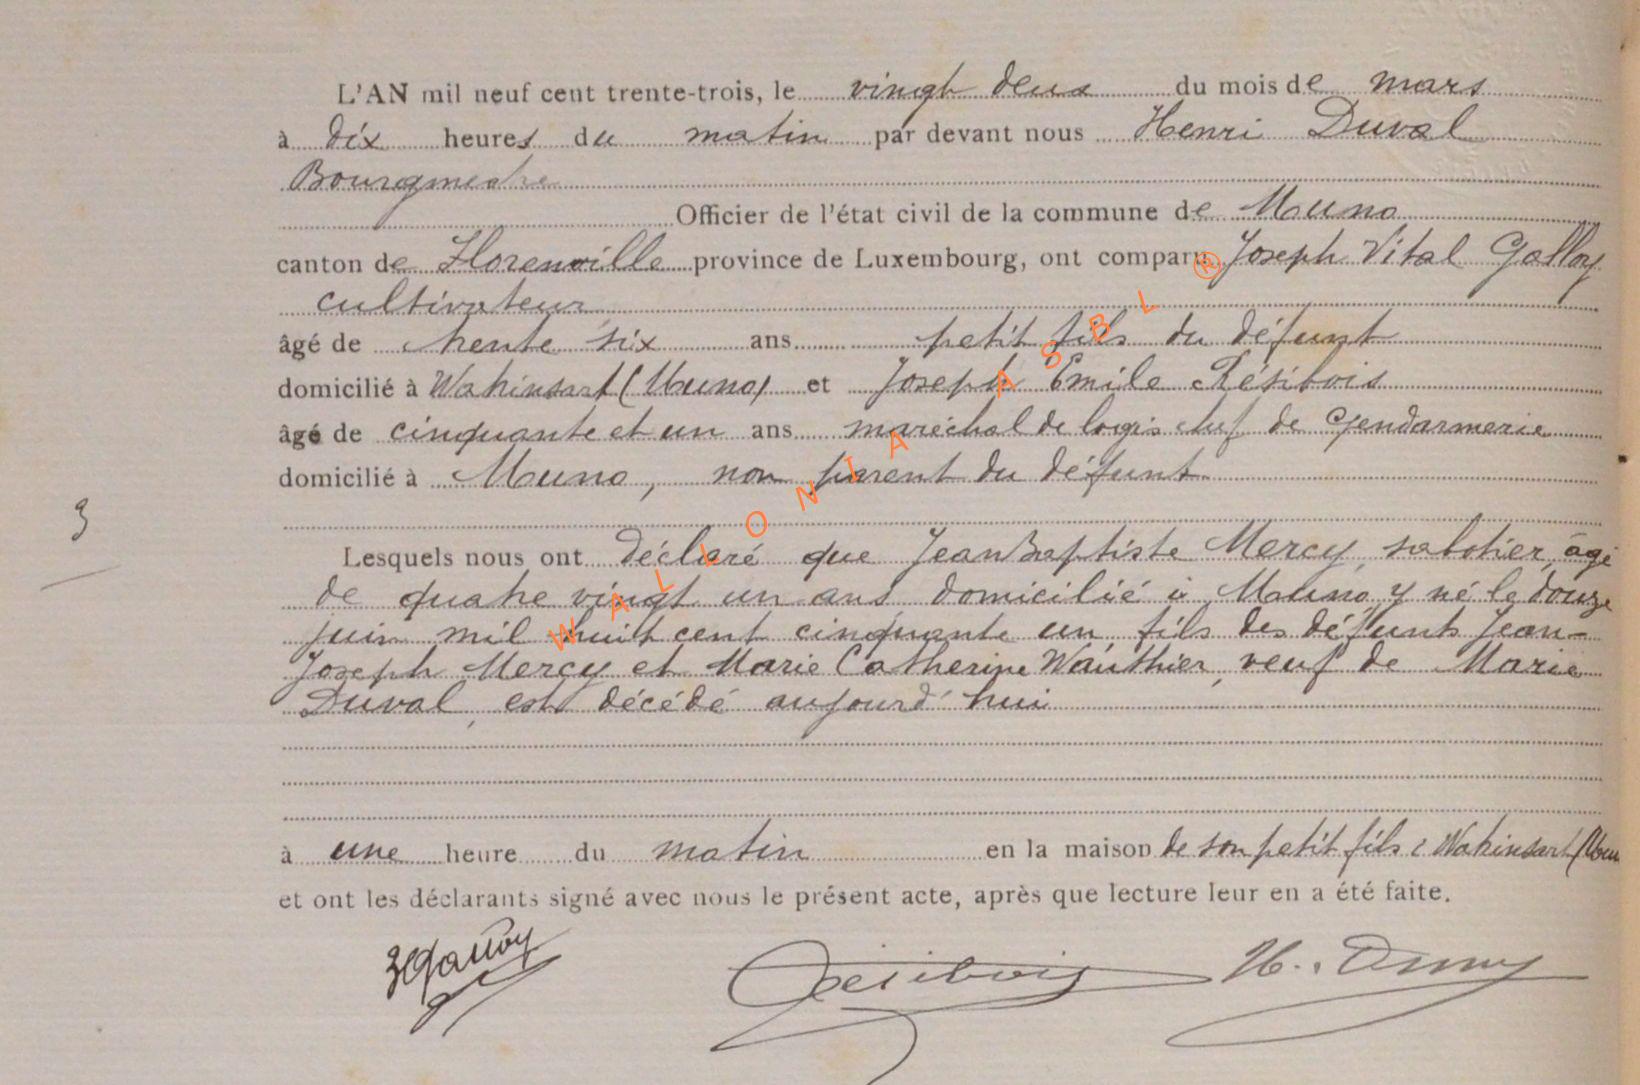 L'AN mil neuf cent trente-trois, le vingt deux du mois de mars
à dix heures du matin par devant nous Henri Duval
Bourgmestre
Officier de l'état civil de la commune de Muno
canton de Florenville province de Luxembourg, ont comparu Joseph Vital Galloy
cultivateur
âgé de trente six ans petit fils du défunt
domicilié à Wakinsart (Muno) et Joseph Emile Résibois
âgé de cinquante et un ans maréchal de logis chef de Gendarmerie
domicilié à Muno, non parent du défunt
3
Lesquels nous ont déclaré que Jean Baptiste Mercy, sabotier, âgé
de quatre vingt un ans domicilié à Muno y né le douze
juin mil huit cent cinquante un fils des défunts Jean-
Joseph Mercy et Marie Catherine Wauthier, veuf de Marie
Duval, est décédé aujourd'hui
à une heure du matin en la maison de son petit fils à Wakinsart (Mun
et ont les déclarants signé avec nous le présent acte, après que lecture leur en a été faite.
Galloy Résibois H.
WALLONIA ASBL ®